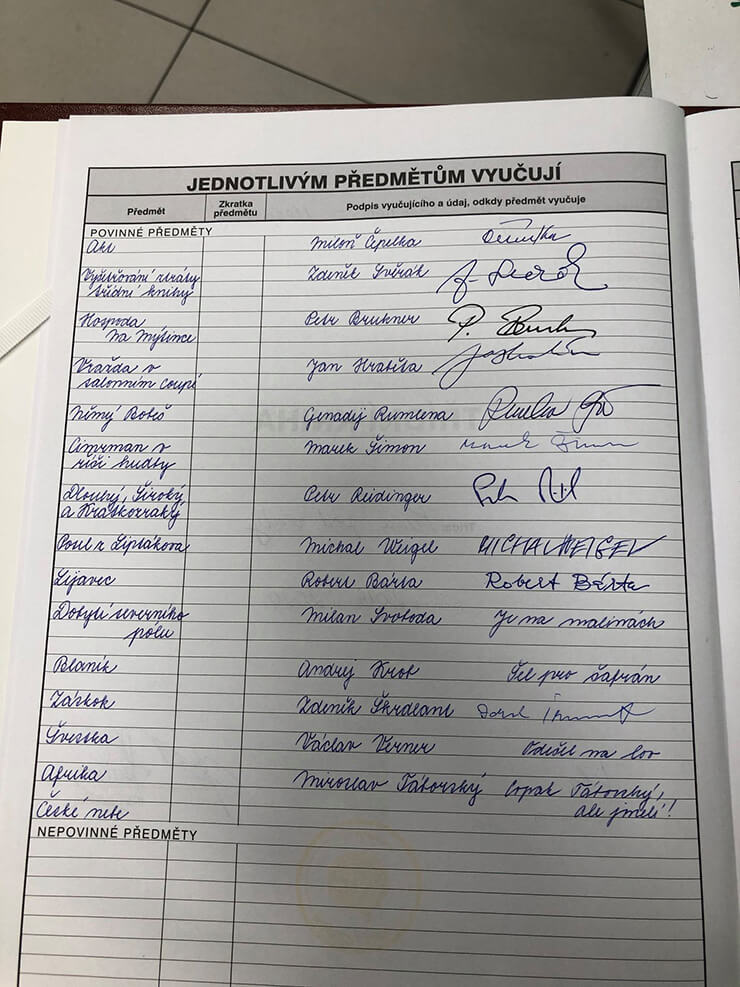 JEDNOTLIVÝM PŘEDMĚTŮM VYUČUJÍ
Předmět Zkratka předmětu Podpis vyučujícího a údaj, odkdy předmět vyučuje
POVINNÉ PŘEDMĚTY
Akt Miloň Čepelka
Vyšetřování ztráty Zdeněk Svěrák
třídní knihy
Hospoda Petr Brukner
Na Mýtince
Vražda v Jan Hraběta
salonním coupé
Němý Bobeš Genadij Rumlena
Cimrman v Marek Šimon
říši hudby
Dlouhý, Široký Petr Reidinger
a Krátkozraký
Posel z Liptákova Michal Weigel MICHAL WEIGEL
Lijavec Robert Bárta Robert Bárta
Dobytí severního Milan Svoboda Je na malinách
pólu
Blaník Andrej Krob Šel pro šafrán
Záskok Zdeněk Škrdlant
Švestka Václav Verner Odešel na lov
Afrika Miroslav Táborský Copak Táborský,
České nebe ale jmelí!
NEPOVINNÉ PŘEDMĚTY